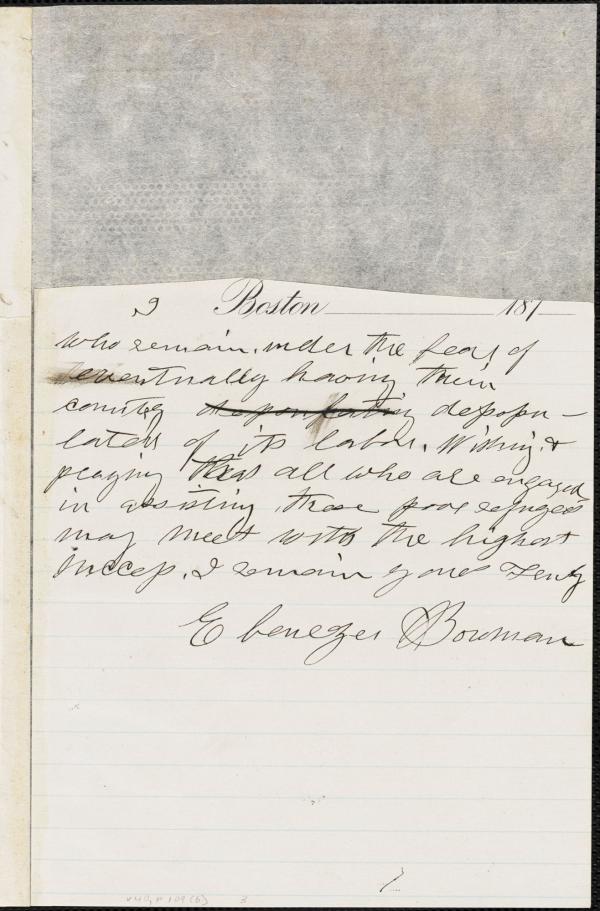 2 Boston 187
who remain under the fear of
eventually having their
country depopulating depopu-
lated of its labor. Wishing &
praying that all who are engaged
in assisting these poor refugees
may meet with the highest
success. I remain yours Truly
Ebenezer Bowman
v.40, p.109(b) 3